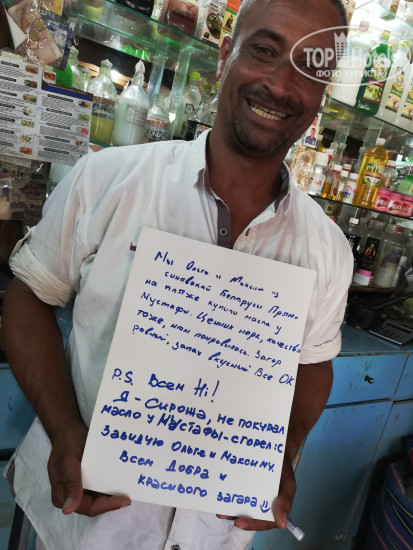 TOPHOTELS
ФОТО ТУРИСТА
Мы Ольга и Максим из
синеокой Беларуси Прямо
на пляже купили масла у
Мустафы. Ценник норм, качество
тоже, нам понравилось. Загар
ровный, запах вкусный Все ОК
P.S. Всем Hi!
Я - Сирожа, не покупал
масло у Мустафы-сгорел:с
Завидую Ольге и Максиму.
Всем Добра и
красивого загара :)